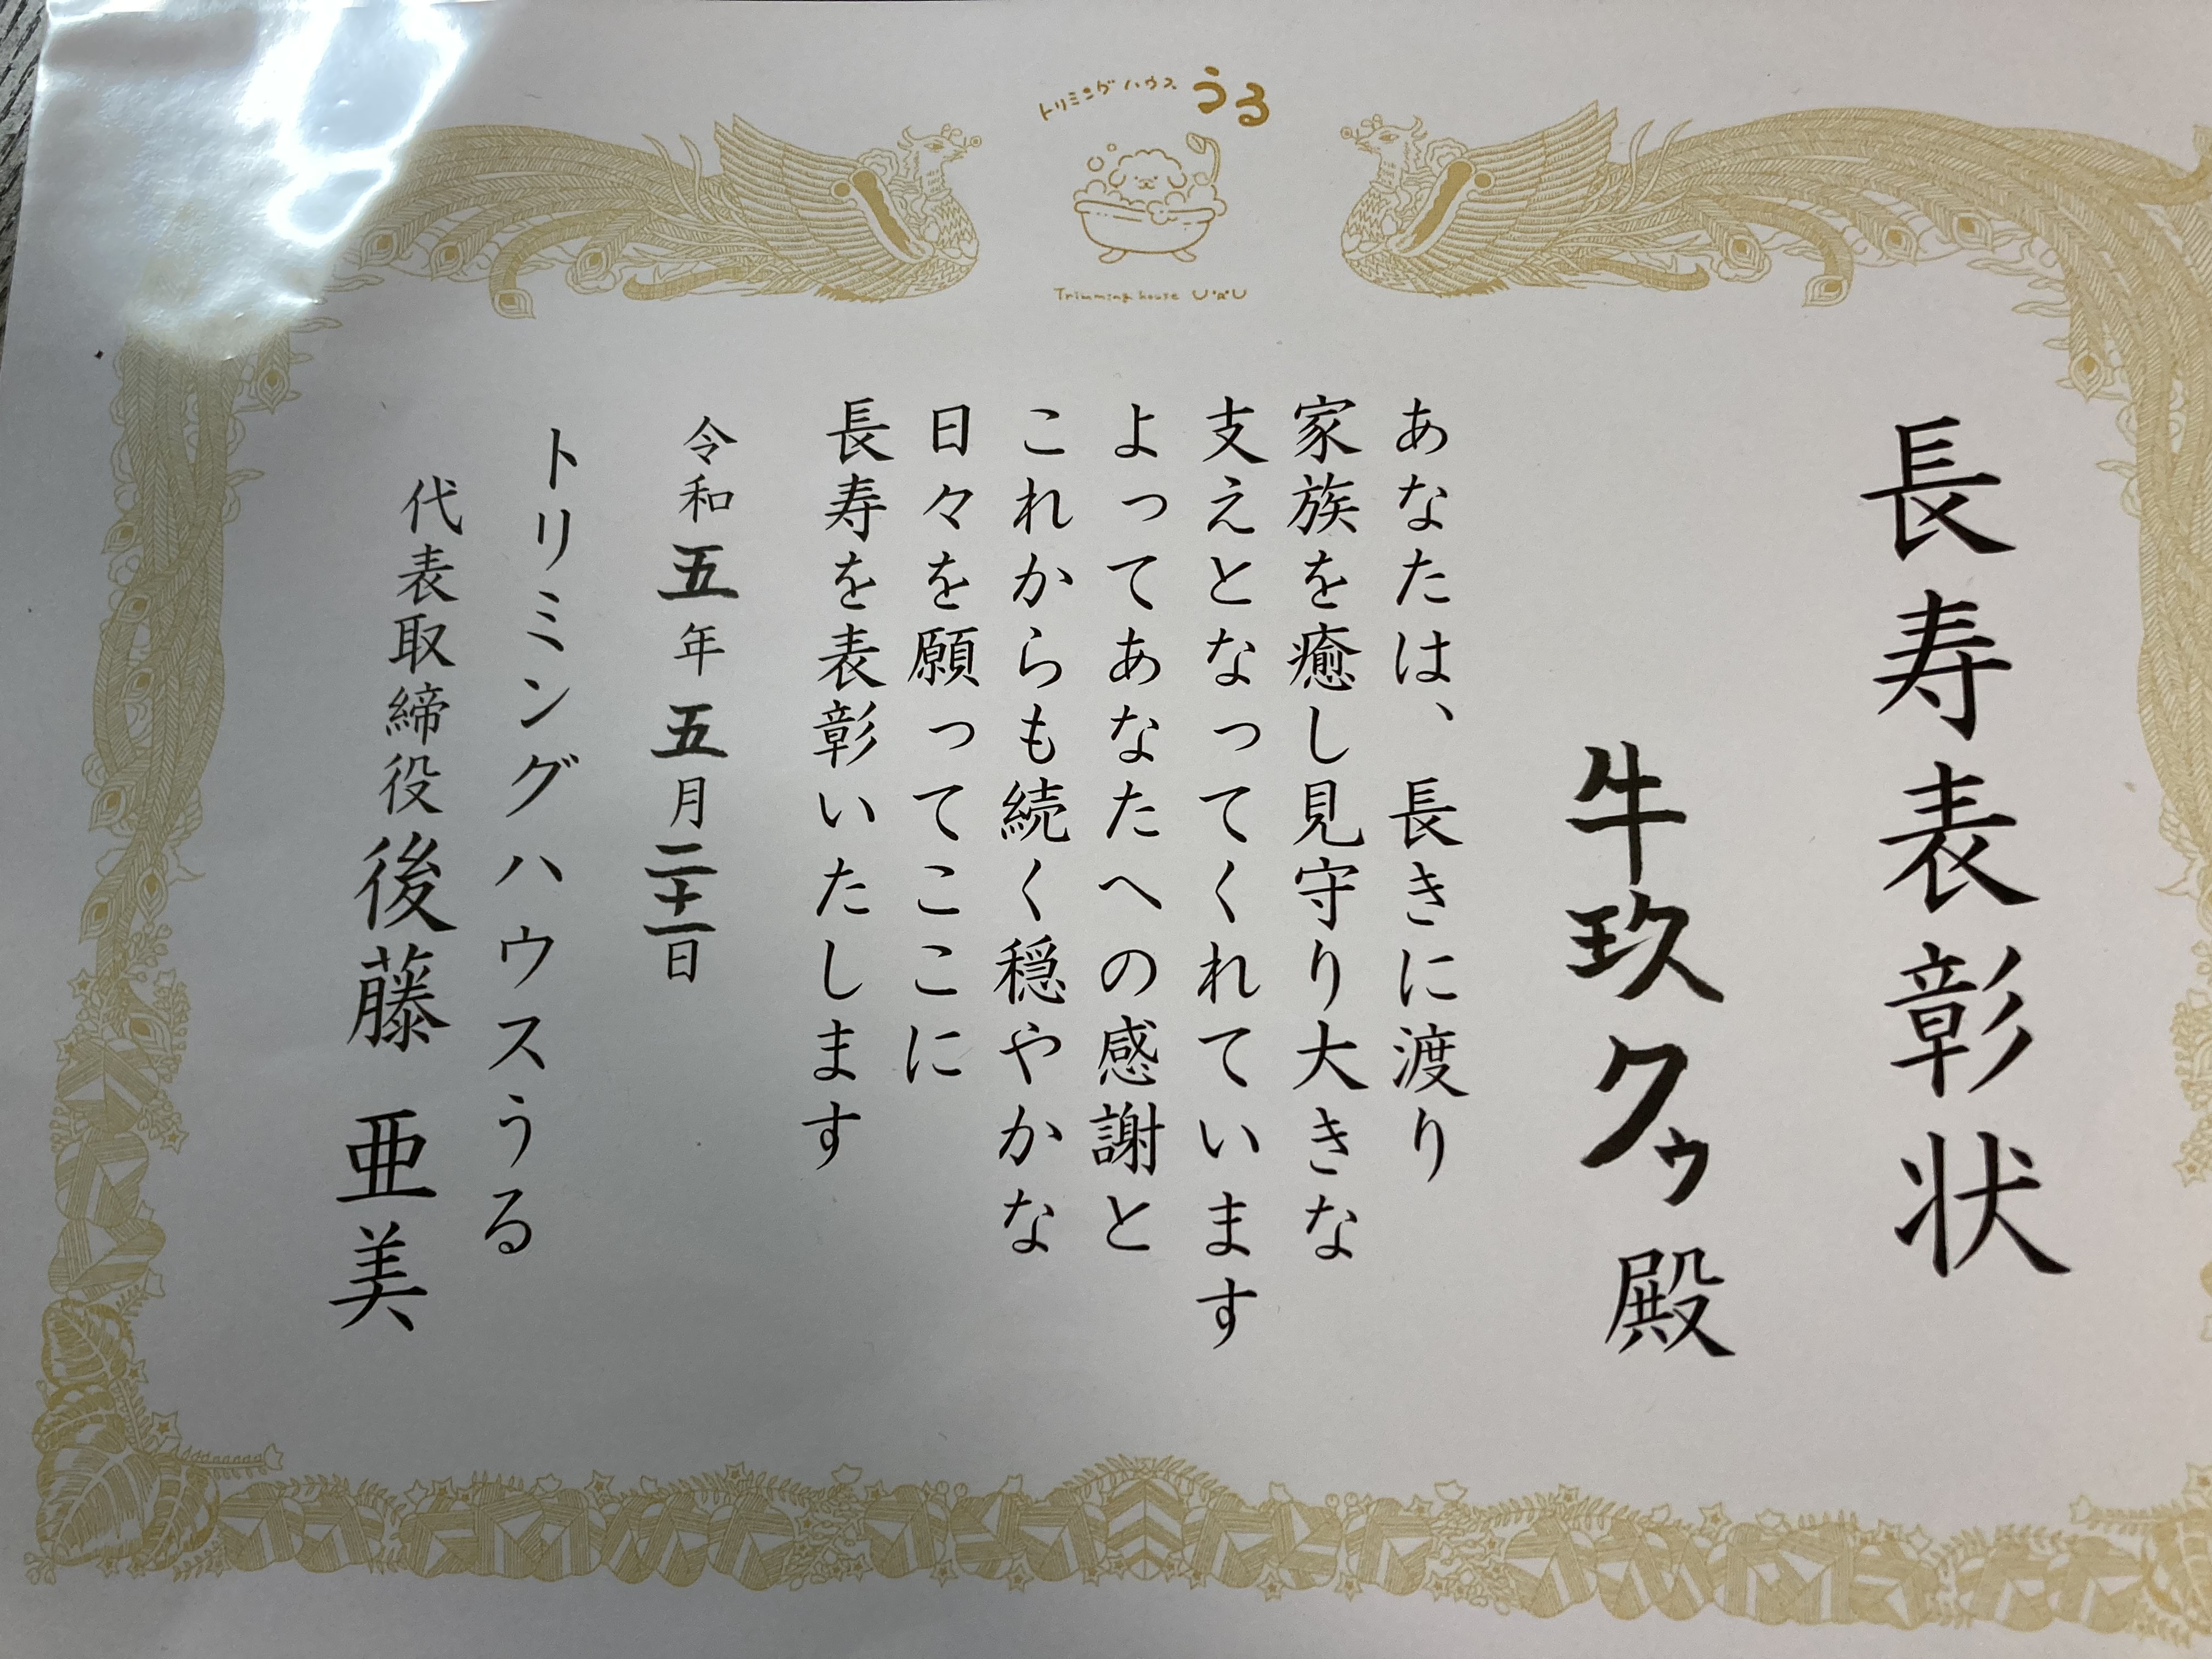 トリミングハウス うる
Trimming house URU
長寿表彰状
牛玖クゥ 殿
あなたは、長きに渡り
家族を癒し見守り大きな
支えとなってくれています
よってあなたへの感謝と
これからも続く穏やかな
日々を願ってここに
長寿を表彰いたします
令和五年五月二十一日
トリミングハウスうる
代表取締役 後藤 亜美